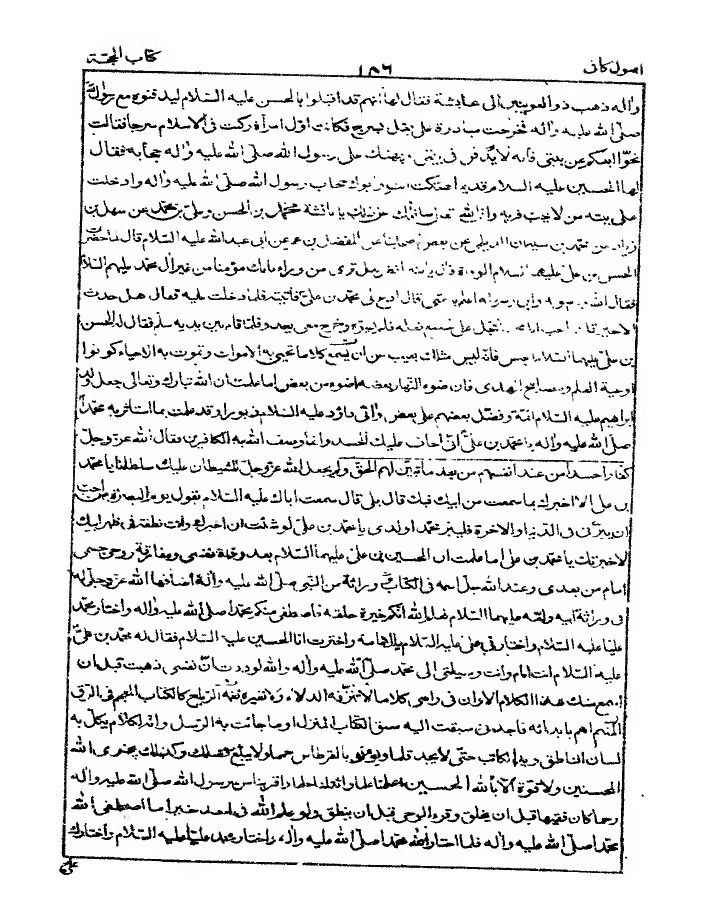 اصول كافى ١٥٦ كتاب الحجّة
واٰله ذهب ذو العوينين الى عايشة فقال لها انهم قد اقبلوا بالحسن عليه السلام ليدفنوه مع رسول الله
صلى الله عليه واٰله فخرجت مبادرة على بغل بسرج فكانت اوّل امرأة ركبت فى الاسلام سرجا فقالت
نحّوا ابنكم عن بيتى فانه لا يدفن فى بيتى ويهتك على رسول الله صلى الله عليه واٰله حجابه فقال
لها الحسين عليه السلام قديما هتكت انت وابوك حجاب رسول الله صلى الله عليه واٰله وادخلت
على بيته من لا يحب قربه وان الله سائلك عن ذلك يا عائشة محمد بن الحسن وعلى بن محمد عن سهل بن
زياد عن محمد بن سليمان الديلمى عن بعض اصحابنا عن المفضل بن عمر عن ابى عبدالله عليه السلام قال لما حضرت
الحسن بن على عليهما السلام الوفاة قال يا قنبر انظر هل ترى من وراء بابك مؤمنا من غير اٰل محمد عليهم السلام
فقال الله ورسوله وابن رسوله اعلم به منى قال ادع لى محمد بن على فاتيته فلما دخلت عليه قال هل حدث
الا خير قلت اجب ابا محمد فعجل على شسع نعله فلم يسوّه وخرج معى يعدو فلما قام بين يديه سلم فقال له الحسن
بن على عليهما السلام اجلس فانه ليس مثلك يغيب عن ان يسمع كلاما تحيى به الاموات وتموت به الاحياء كونوا
اوعية العلم ومصابيح الهدى فان ضوء النهار بعضه اضوء من بعض اما علمت ان الله تبارك وتعالى جعل ولد
ابراهيم عليه السلام ائمة وفضّل بعضهم على بعض واٰتى داود عليه السلام زبورا وقد علمت بما استأثر به محمدا
صلى الله عليه واٰله يا محمد بن على انى اخاف عليك الحسد وانما وصف الله به الكافرين فقال الله عز وجل
كفارا حسدا من عند انفسهم من بعد ما تبيّن لهم الحق ولم يجعل الله عز وجل للشيطان عليك سلطانا يا محمد
بن على الا اخبرك بما سمعت من ابيك فيك قال بلى قال سمعت اباك عليه السلام يقول يوم البصرة من احب
ان يبرّنى فى الدنيا والاٰخرة فليبر محمدا ولدى يا محمد بن على لو شئت ان اخبرك وانت نطفة فى ظهر ابيك
لاخبرتك يا محمد بن على اما علمت ان الحسين بن على عليهما السلام بعد وفاة نفسى ومفارقة روحى جسمى
امام من بعدى وعند الله جل اسمه فى الكتاب وراثة من النبى صلى الله عليه واٰله اضافها الله عز وجل له
فى وراثة ابيه وامه عليهما السلام فعلم الله انكم خيرة خلقه فاصطفى منكم محمدا صلى الله عليه واٰله واختار محمد
عليا عليه السلام واختارنى على عليه السلام بالامامة واخترت انا الحسين عليه السلام فقال له محمد بن على
عليه السلام انت امام وانت وسيلتى الى محمد صلى الله عليه واٰله والله لوددت انّ نفسى ذهبت قبل ان
اسمع منك هذا الكلام الا وان فى راسى كلاما لا تنزفه الدلاء ولا تغيره نغمة الرياح كالكتاب المعجم فى الرق
المنمنم اهم بابدائه فاجدنى سبقت اليه سبق الكتاب المنزل او ما جائت به الرسل وانه لكلام يكل به
لسان الناطق ويد الكاتب حتى لا يجد قلما ويؤتوا بالقرطاس حمما ولا يبلغ فضلك وكذلك يجزى الله
المحسنين ولا قوة الا بالله الحسين اعلمنا علما واثقلنا حلما واقربنا من رسول الله صلى الله عليه واٰله
رحما كان فقيها قبل ان يخلق وقرء الوحى قبل ان ينطق ولو علم الله فى احد خيرا ما اصطفى الله
محمدا صلى الله عليه واٰله فلما اختار الله محمدا صلى الله عليه واٰله واختار محمد عليا عليه السلام واختارك
على